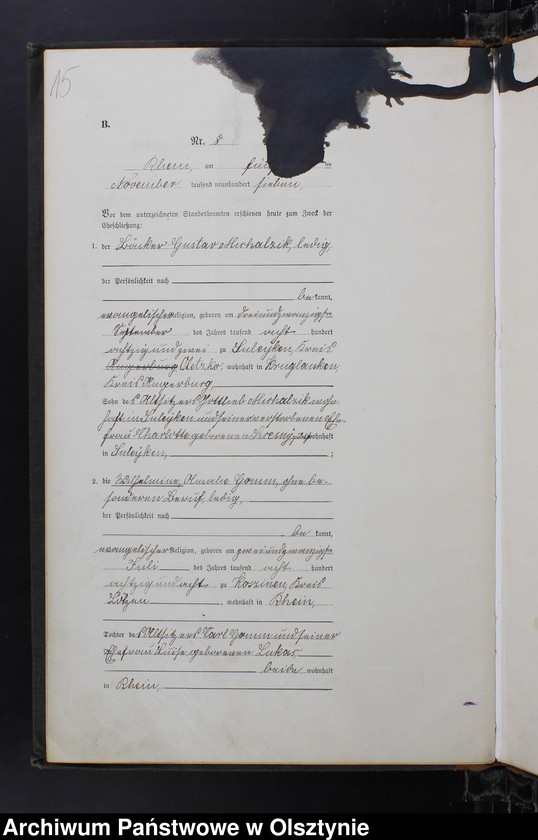 15
B.
Nr. 8
Rhein, am fünf
November tausend neunhundert sieben.
Vor dem unterzeichneten Standesbeamten erschienen heute zum Zweck der
Eheschließung:
1. der Bäcker Gustav Michalzik, ledig,
der Persönlichkeit nach
be kannt,
evangelischer Religion, geboren am dreiundzwanzigsten
September des Jahres tausend acht hundert
achtzig und zwei zu Suleyken, Kreis
Angerburg Oletzko, wohnhaft in Kruglanken,
Kreis Angerburg,
Sohn des Altsitzers Gottlieb Michalzik wohn-
haft in Suleyken und seiner verstorbenen Ehe-
frau Charlotte geborenen wohnhaft
in Suleyken, ;
2. die Wilhelmine, Amalie Gomm, ohne be-
sonderen Beruf, ledig,
der Persönlichkeit nach
be kannt,
evangelischer Religion, geboren am zweiundzwanzigsten
Juli des Jahres tausend acht hundert
achtzig und acht zu Koszinen, Kreis
Lötzen, wohnhaft in Rhein,
Tochter des Altsitzers Karl Gomm und seiner
Ehefrau Luise geborenen Lukas
beide wohnhaft
in Rhein,
Archiwum Państwowe w Olsztynie